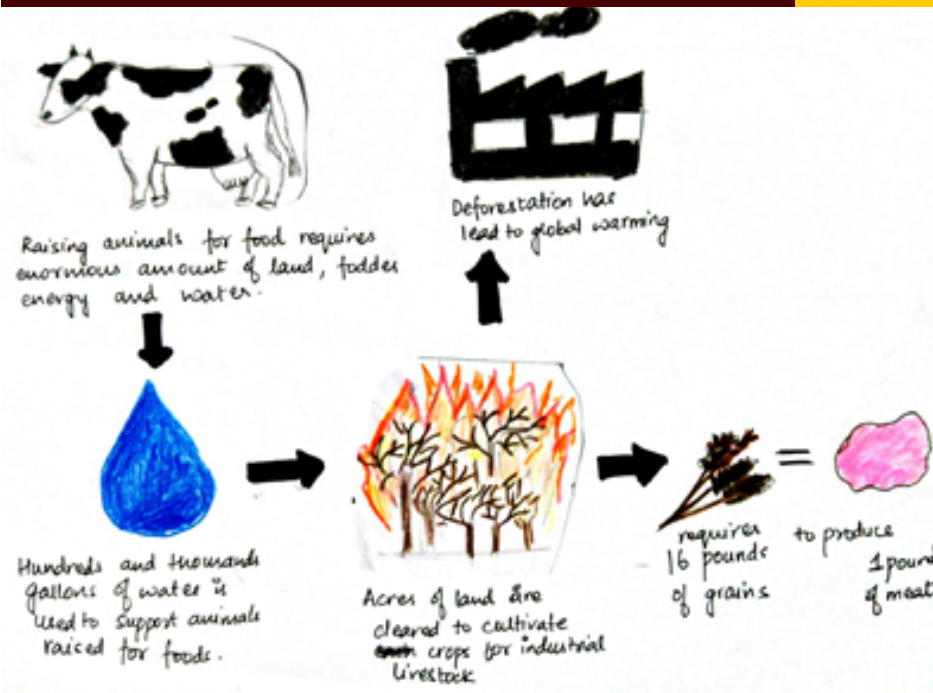 Raising animals for food requires
enormous amount of land, fodder
energy and water.
Deforestation has
lead to global warming
Hundreds and thousands
gallons of water is
used to support animals
raised for foods.
Acres of land are
cleared to cultivate
crops for industrial
livestock
=
requires
16 pounds
of grains
to produce
1 pound
of meat